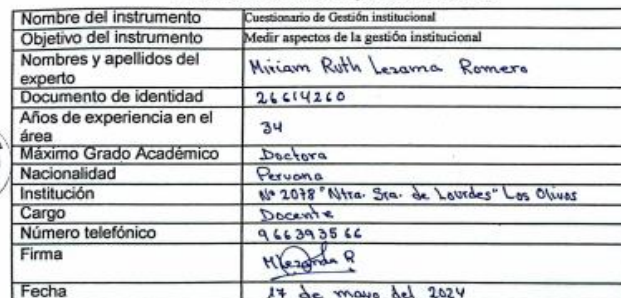 Nombre del instrumento Cuestionario de Gestión institucional
Objetivo del instrumento Medir aspectos de la gestión institucional
Nombres y apellidos del experto Miriam Ruth Lezama Romero
Documento de identidad 26614260
Años de experiencia en el área 34
Máximo Grado Académico Doctora
Nacionalidad Peruana
Institución N° 2078 "Ntra. Sra. de Lourdes" Los Olivos
Cargo Docente
Número telefónico 966393566
Firma MLezama R
Fecha 17 de mayo del 2024